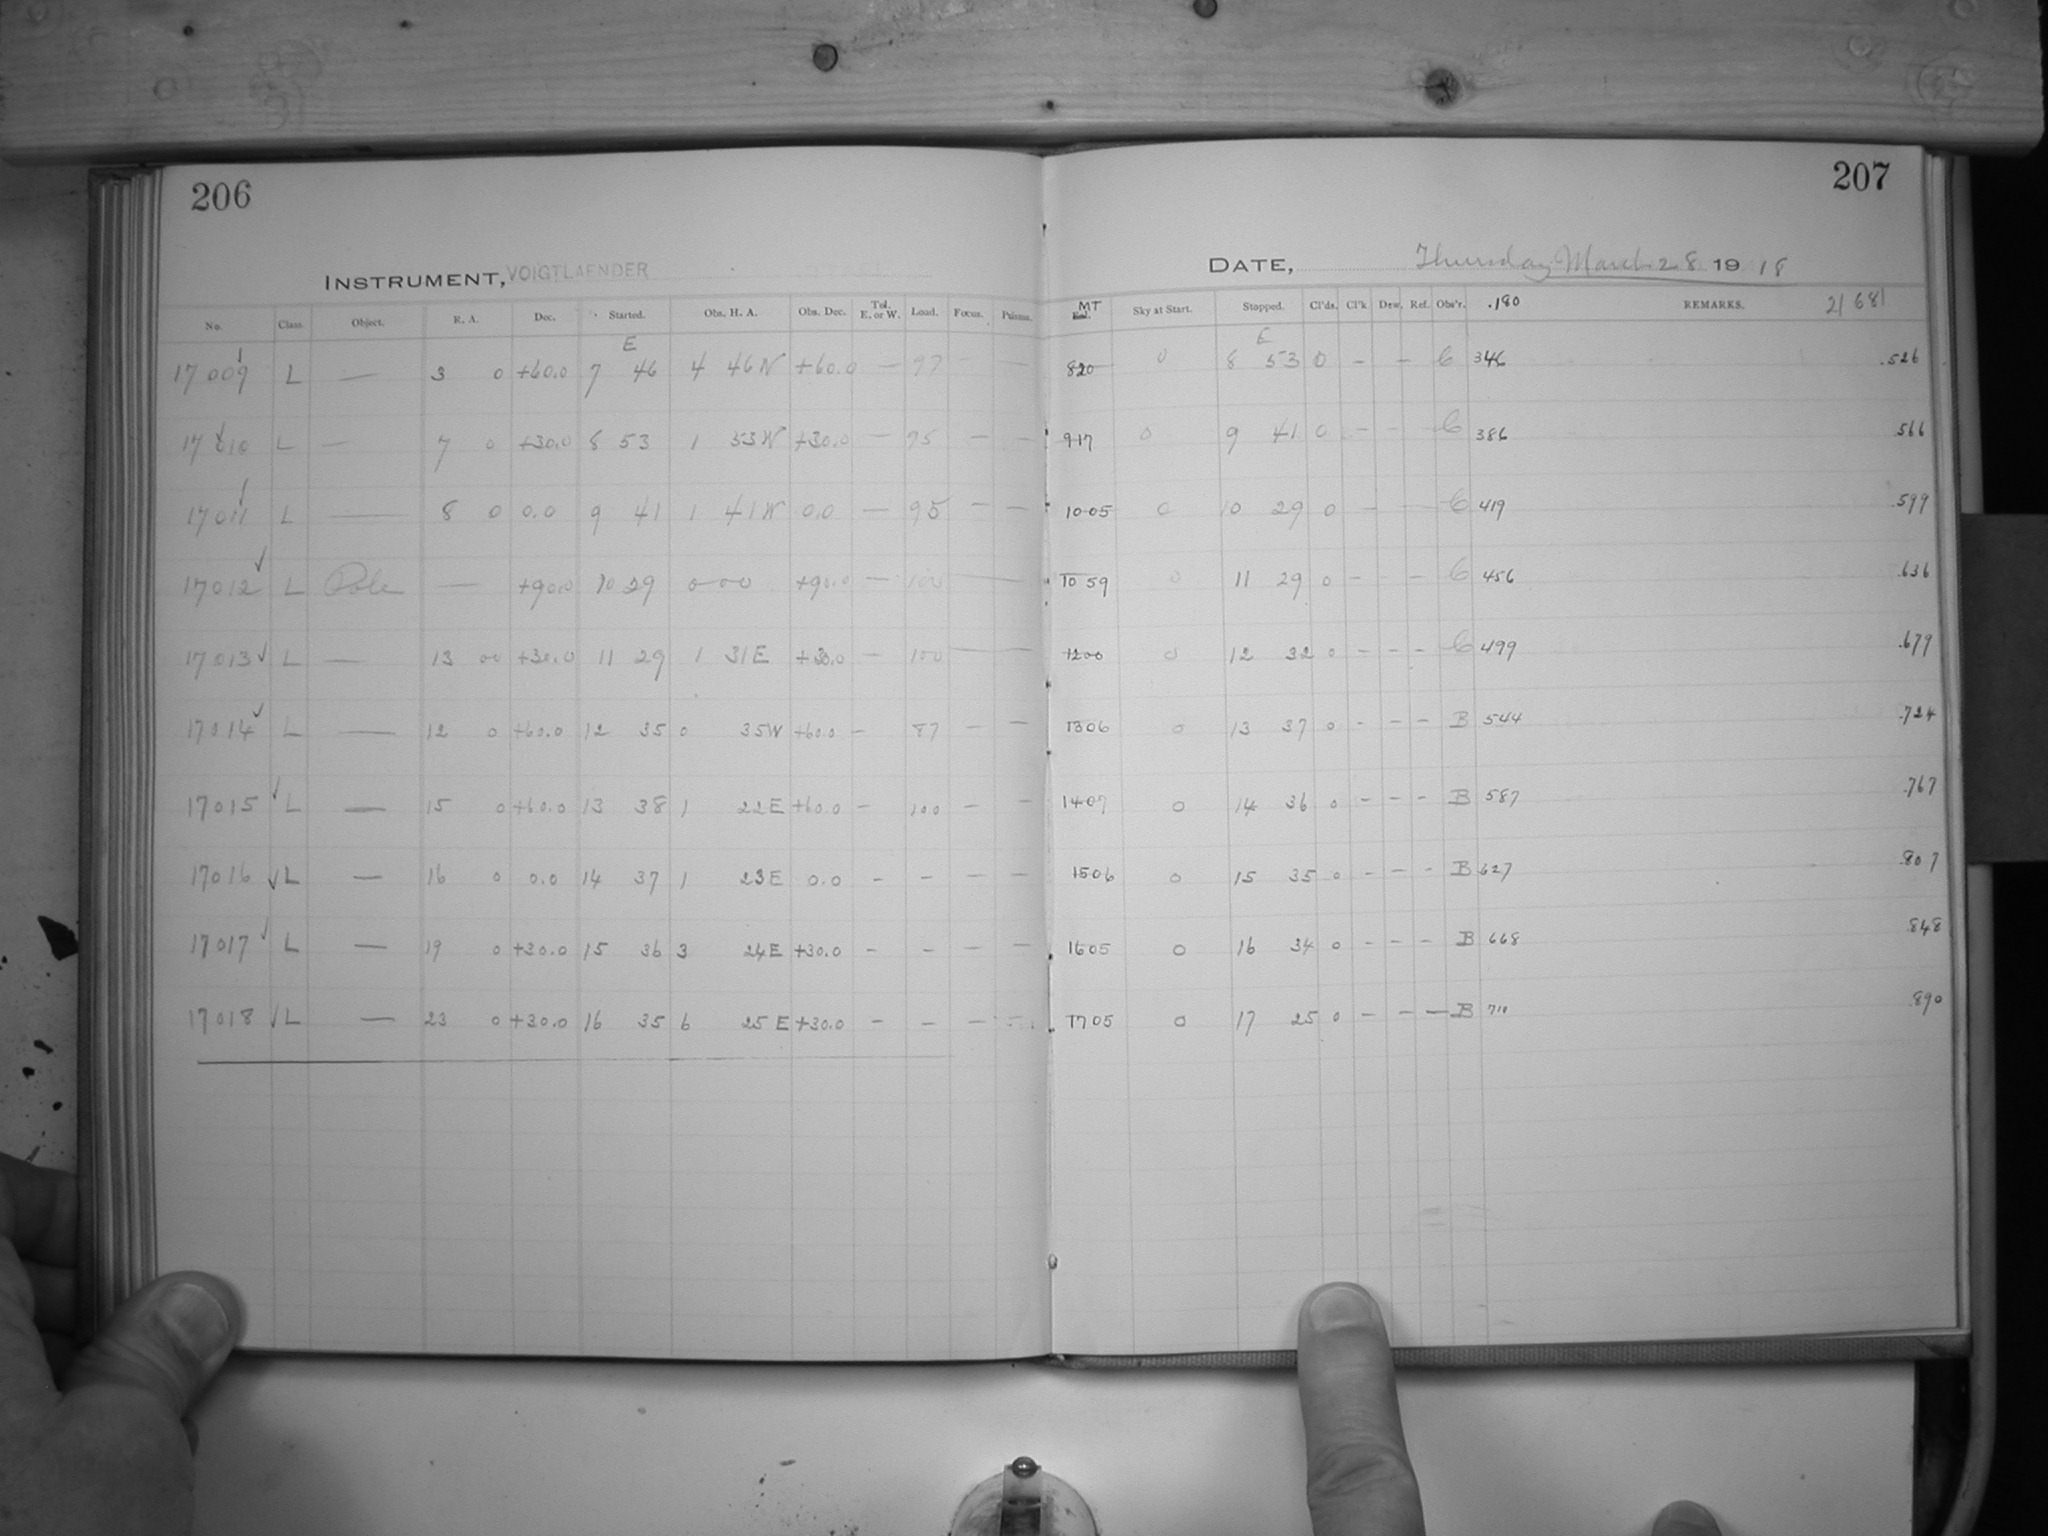 206
207
INSTRUMENT, VOIGTLAENDER
DATE, Thursday March 28 1918
No. Class. Object. R. A. Dec. Started. Obs. H. A. Obs. Dec. Tel. E. or W. Load. Focus. Prisms. MT Sky at Start. Stopped. Cl'ds. Cl'k Dew. Ref. Obs'r. .180 REMARKS. 21 681
E E
17009 L — 3 0 +60.0 7 46 4 46W +60.0 — 97 — — 820 0 8 53 0 — — C 346 .526
17010 L — 7 0 +30.0 8 53 1 53W +30.0 — 95 — — 917 0 9 41 0 - - - C 386 .566
17011 L — 8 0 0.0 9 41 1 41W 0.0 — 95 — — 1005 0 10 29 0 - C 419 .599
17012 L Pole — +90.0 10 29 0 00 +90.0 — 100 — 1059 0 11 29 0 - - C 456 .636
17013 L — 13 00 +30.0 11 29 1 31E +30.0 — 100 — — 1200 0 12 32 0 - - - C 499 .679
17014 L — 12 0 +60.0 12 35 0 35W +60.0 — 87 — — 1306 0 13 37 0 - - - B 544 .724
17015 L — 15 0 +60.0 13 38 1 22E +60.0 - 100 - - 1407 0 14 36 0 - - - B 587 .767
17016 L — 16 0 0.0 14 37 1 23E 0.0 - - - - 1506 0 15 35 0 - - - B 627 .807
17017 L — 19 0 +30.0 15 36 3 24E +30.0 - - - - 1605 0 16 34 0 - - - B 668 .848
17018 L — 23 0 +30.0 16 35 6 25E +30.0 - - - 1705 0 17 25 0 - - — B 710 .890